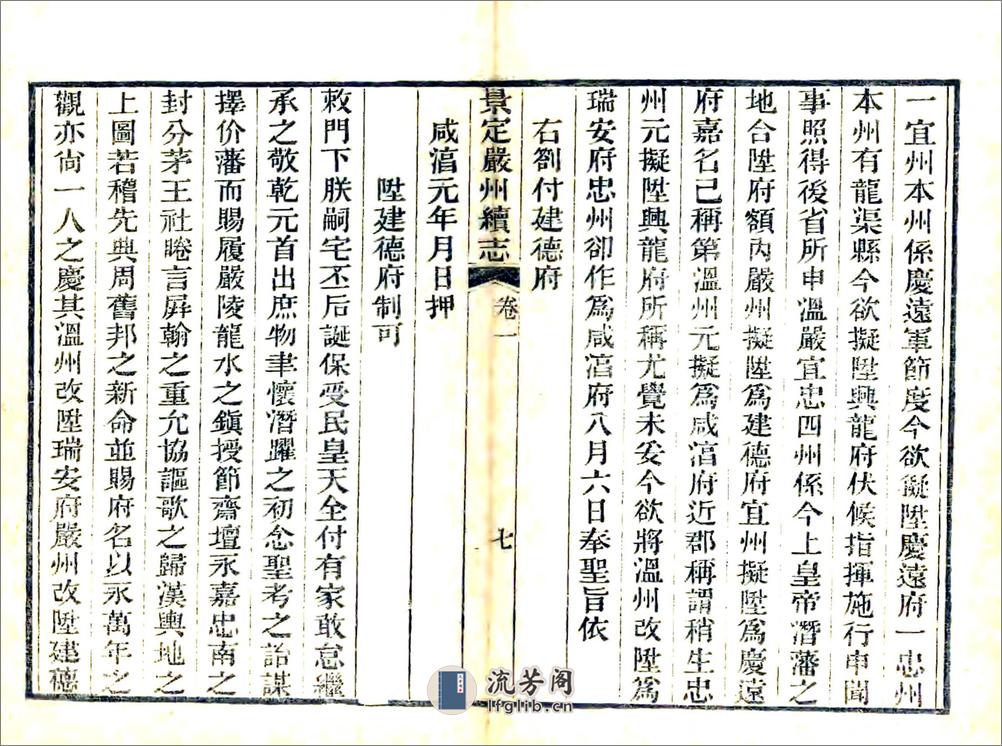 一宜州本州係慶遠軍節度今欲擬陞慶遠府一忠州
本州有龍渠縣今欲擬陞興龍府伏候指揮施行申聞
事照得後省所申溫嚴宜忠四州係今上皇帝潛藩之
地合陞府額內嚴州擬陞爲建德府宜州擬陞爲慶遠
府嘉名已稱第溫州元擬爲咸淳府近郡稱謂稍生忠
州元擬陞興龍府所稱尤覺未妥今欲將溫州改陞爲
瑞安府忠州卻作爲咸淳府八月六日奉聖旨依
右劄付建德府
景定嚴州續志
卷一
七
咸淳元年月日押
陞建德府制可
敕門下朕嗣宅丕后誕保受民皇天全付有家敢怠繼
承之敬乾元首出庶物聿懷潛躍之初念聖考之詒謀
擇价藩而賜履嚴陵龍水之鎭授節齋壇永嘉忠南之
封分茅王社睠言屛翰之重允協謳歌之歸漢輿地之
上圖若稽先典周舊邦之新命並賜府名以永萬年之
觀亦尙一人之慶其溫州改陞瑞安府嚴州改陞建德
流芳阁
lfglib.cn